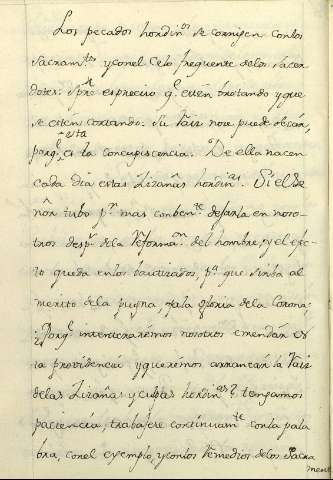 Los pecados hordin.os se corrigen con los
Sacram.tos y con el Celo frequente de los Sacer
dotes: Spre. es preciso q.e estèn brotando y que
se esten cortando: su Raiz no se puede desàr,
porq.e esta es la concupiscencia. De ella nacen
cada dia estas Zizañas hordin.as. Si el Se
ñòr tubo p.r mas conben.te dejarla en noso
tros desp.s de la Reforma.on del hombre, y el efec
to queda en los bautizados, p.a que sirba al
merito de la pugna y a la gloria de la Corona:
¿Porq.e intentarémos nosotros emendàr es
ta providencia y querémos arrancar la Raiz
de las Zizañas y culpas hordin.as? tengamos
paciencia, trabajese continuam.te con la pala
bra, con el exemplo, y con los Remedios de los Sacra
ment